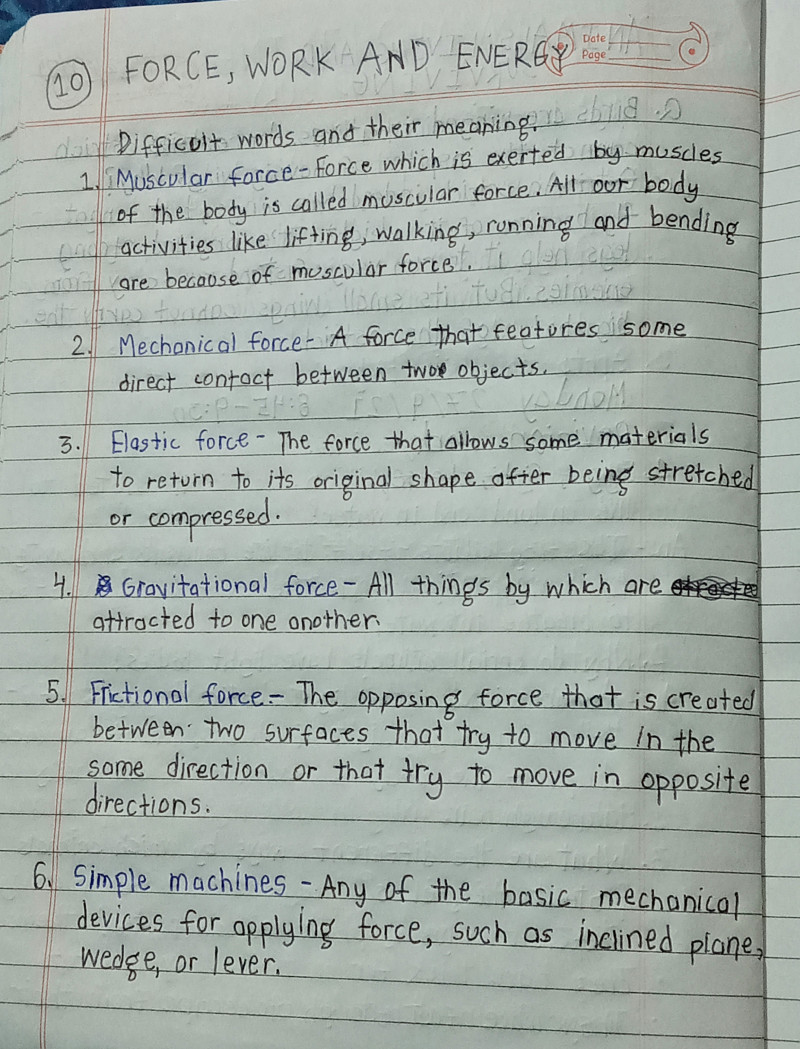 10 FORCE, WORK AND ENERGY
Date
Page
Difficult words and their meaning.
1. Muscular force - Force which is exerted by muscles
of the body is called muscular force. All our body
activities like lifting, walking, running and bending
are because of muscular force.
2. Mechanical force - A force that features some
direct contact between two objects.
3. Elastic force - The force that allows some materials
to return to its original shape after being stretched
or compressed.
4. Gravitational force - All things by which are
attracted to one another.
5. Frictional force - The opposing force that is created
between two surfaces that try to move in the
same direction or that try to move in opposite
directions.
6. Simple machines - Any of the basic mechanical
devices for applying force, such as inclined plane,
wedge, or lever.